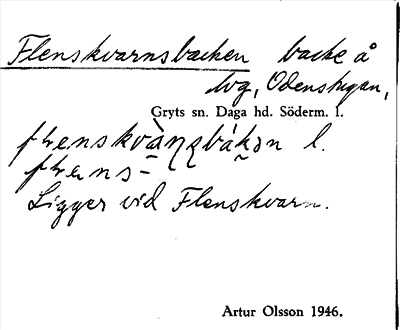 Flenskvarnsbacken backe å
lvg, Odenstugan,
Gryts sn. Daga hd. Söderm. l.
l.
Ligger vid Flenskvarn.
Artur Olsson 1946.